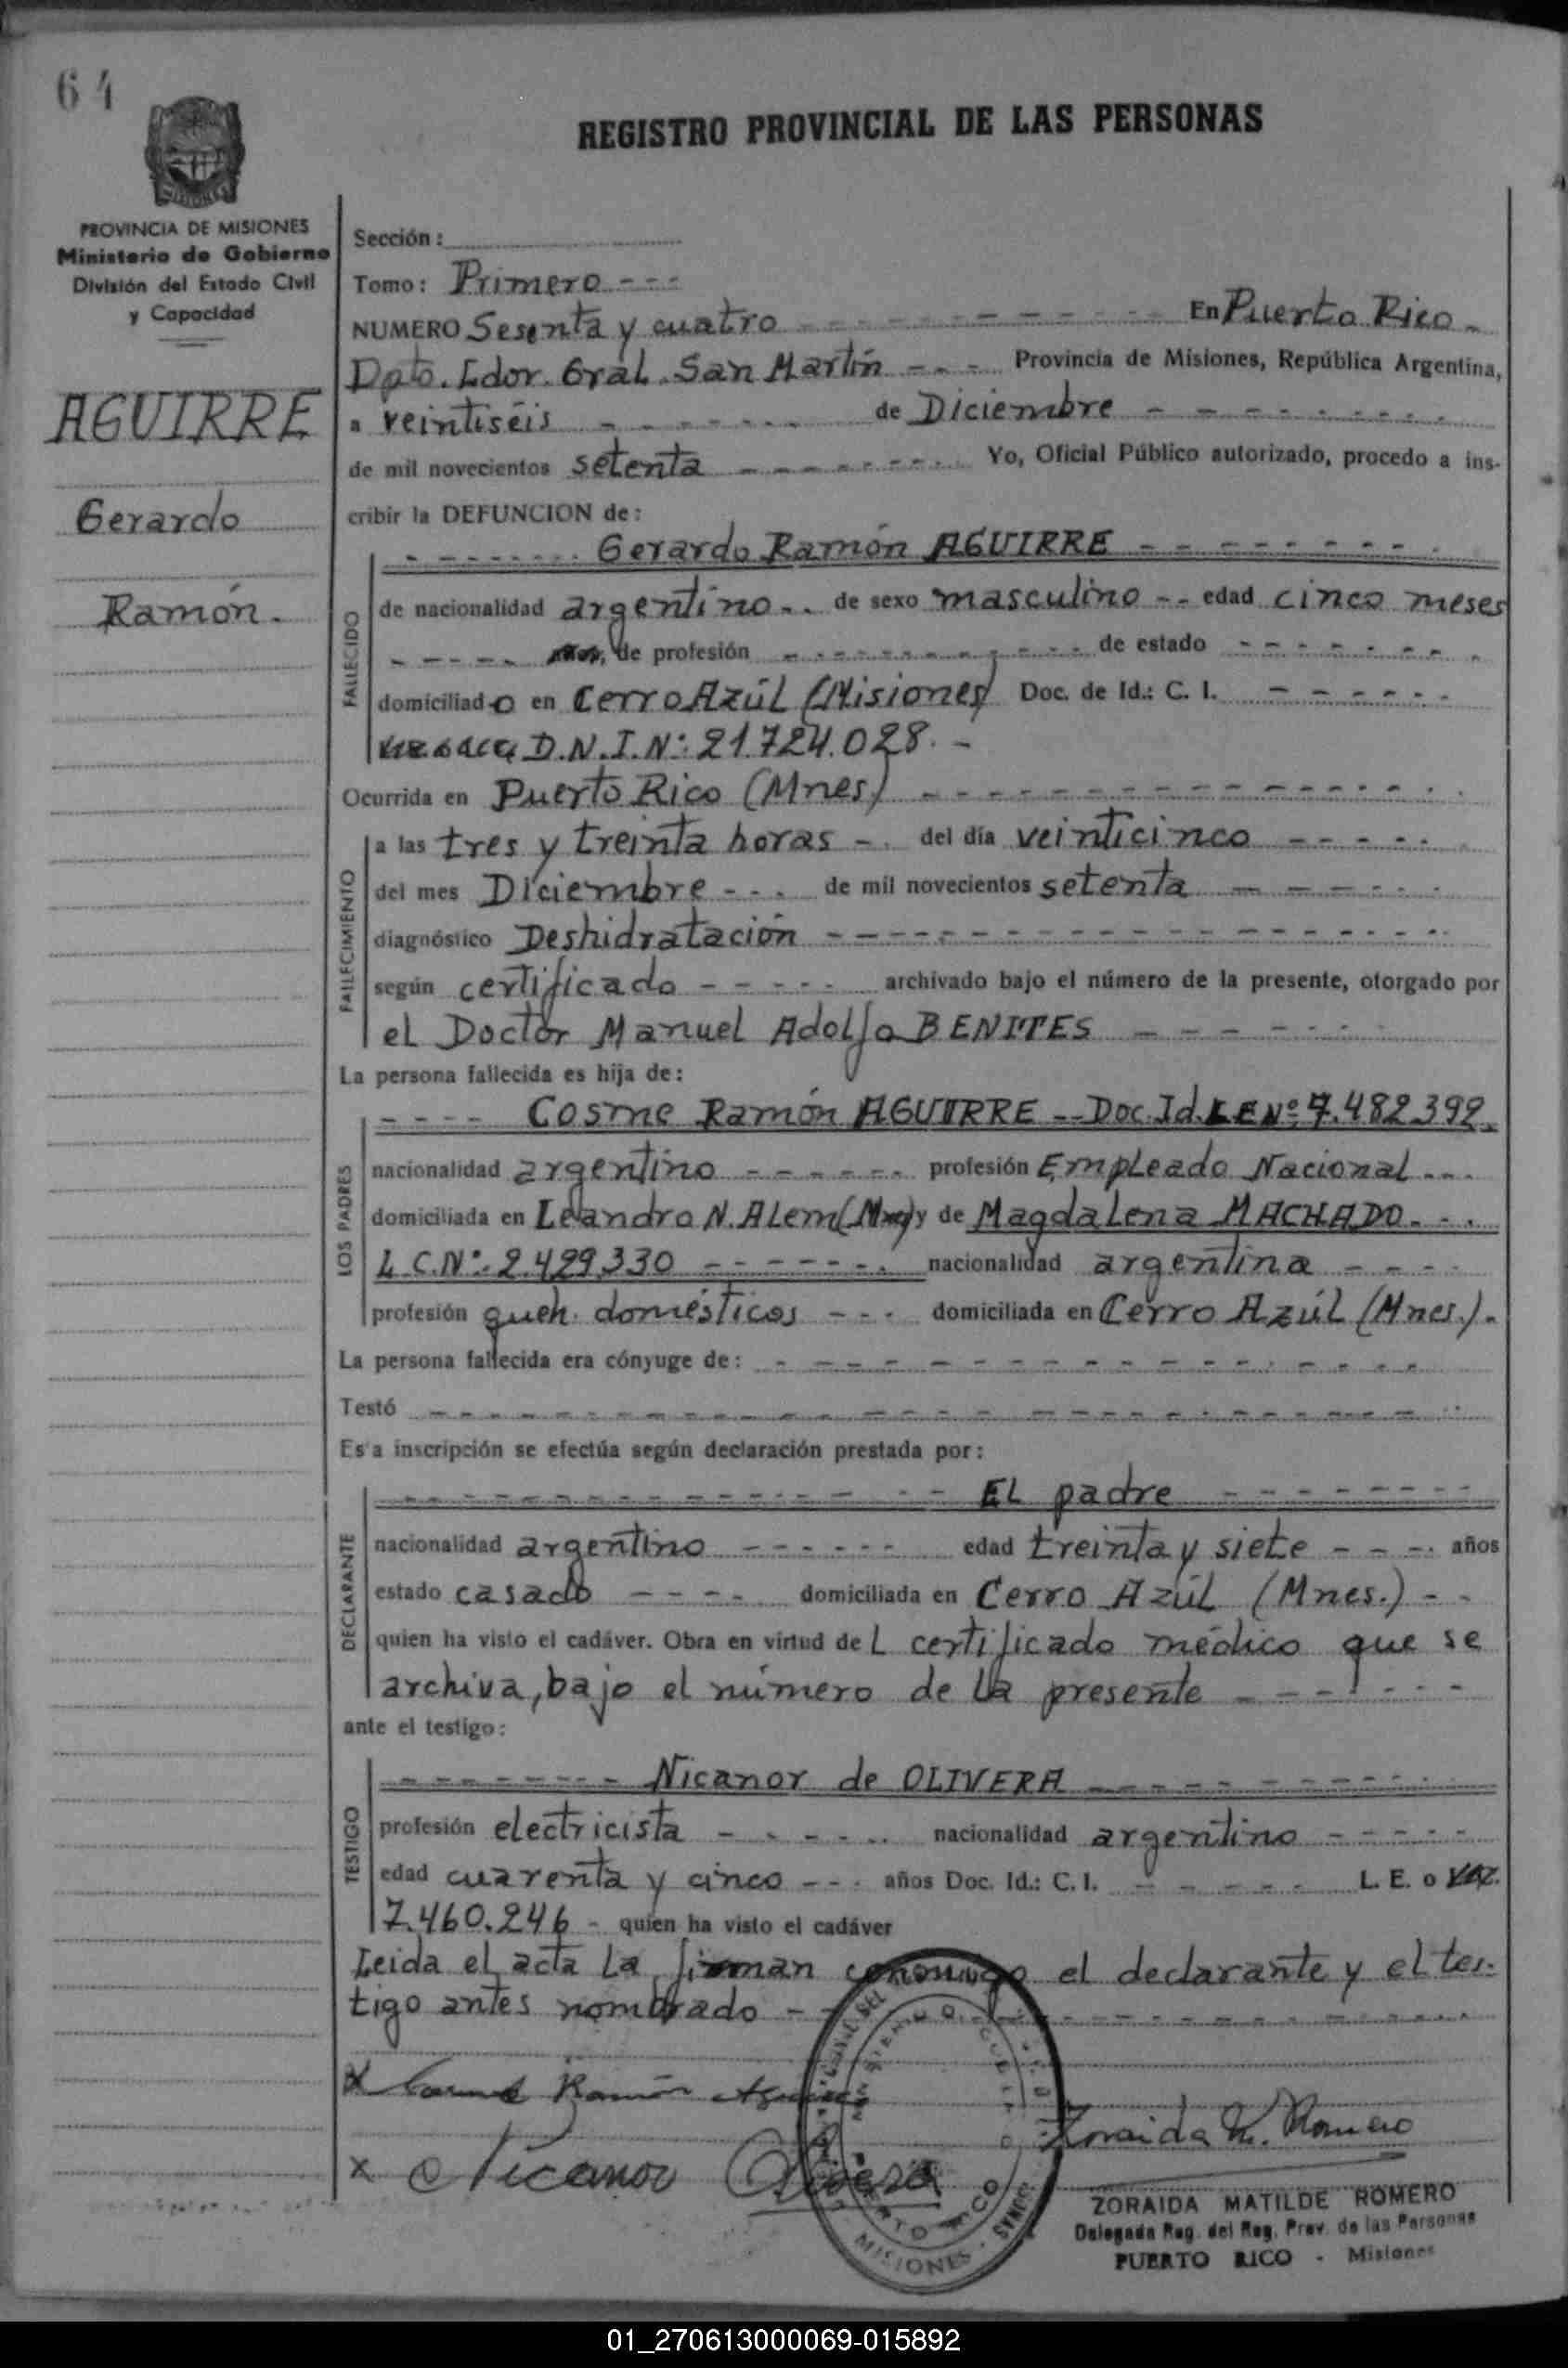 64
REGISTRO PROVINCIAL DE LAS PERSONAS
PROVINCIA DE MISIONES
Ministerio de Gobierno
División del Estado Civil
y Capacidad
AGUIRRE
Gerardo
Ramón.
Sección:
Tomo: Primero ---
NUMERO Sesenta y cuatro --- En Puerto Rico -
Dpto. Ldor. Gral. San Martín --- Provincia de Misiones, República Argentina,
a veintiséis --- de Diciembre ---
de mil novecientos setenta --- Yo, Oficial Público autorizado, procedo a ins-
cribir la DEFUNCION de:
--- Gerardo Ramón AGUIRRE ---
FALLECIDO
de nacionalidad argentino -- de sexo masculino -- edad cinco meses
--- de profesión --- de estado ---
domiciliado en Cerro Azúl (Misiones) Doc. de Id.: C. I. ---
D.N.I.Nº: 21.724.028.-
Ocurrida en Puerto Rico (Mnes) ---
FALLECIMIENTO
a las tres y treinta horas -. del día veinticinco ---
del mes Diciembre --- de mil novecientos setenta ---
diagnóstico Deshidratación ---
según certificado --- archivado bajo el número de la presente, otorgado por
el Doctor Manuel Adolfo BENITES ---
La persona fallecida es hija de:
LOS PADRES
--- Cosme Ramón AGUIRRE -- Doc. Id. L E Nº 7.482392.
nacionalidad argentino --- profesión Empleado Nacional ---
domiciliada en Leandro N. Alem (Mnes) y de Magdalena MACHADO ---
L.C.Nº: 2.429.330 --- nacionalidad argentina ---
profesión queh. domésticos --- domiciliada en Cerro Azúl (Mnes.).
La persona fallecida era cónyuge de: ---
Testó ---
Esta inscripción se efectúa según declaración prestada por:
DECLARANTE
--- El padre ---
nacionalidad argentino --- edad treinta y siete --- años
estado casado --- domiciliada en Cerro Azúl (Mnes.) --
quien ha visto el cadáver. Obra en virtud del certificado médico que se
archiva, bajo el número de la presente ---
ante el testigo:
TESTIGO
--- Nicanor de OLIVERA ---
profesión electricista --- nacionalidad argentino ---
edad cuarenta y cinco --- años Doc. Id.: C. I. --- L. E. o
7.460.246 - quien ha visto el cadáver
Leida el acta la firman conmigo el declarante y el tes-
tigo antes nombrado ---
x Cosme Ramón Aguirre
Zoraida M. Romero
x Nicanor Olivera
PUERTO RICO
MISIONES
ZORAIDA MATILDE ROMERO
Delegada Reg. del Reg. Prov. de las Personas
PUERTO RICO - Misiones
01_270613000069-015892